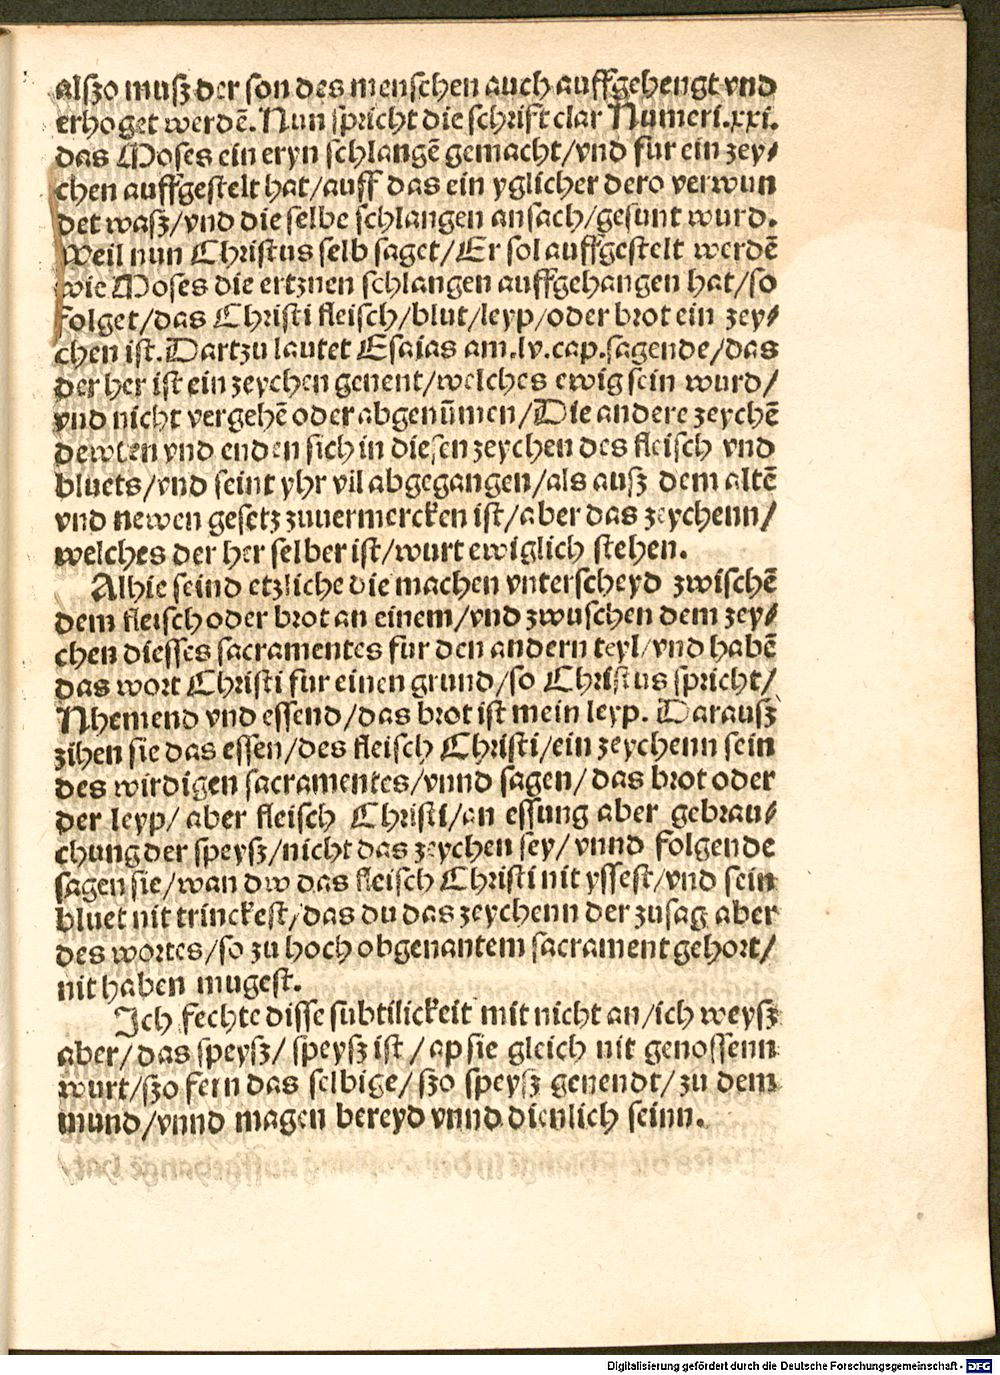 alſzo muſz der ſon des menſchen auch auffgehengt vnd
erhoget werdē. Nun ſpricht die ſchrift clar Numeri.xxi.
das Moſes ein eryn ſchlangē gemacht/vnd fur ein zey⸗
chen auffgeſtelt hat/auff das ein yglicher dero verwun
det waſz/vnd die ſelbe ſchlangen anſach/geſunt wurd.
Weil nun Chriſtus ſelb ſaget/Er ſol auffgeſtelt werdē
wie Moſes die ertznen ſchlangen auffgehangen hat/ſo
folget/das Chriſti fleiſch/blut/leyp/oder brot ein zey⸗
chen iſt. Dartzu lautet Eſaias am.lv.cap.ſagende/das
der her iſt ein zeychen genent/welches ewig ſein wurd/
vnd nicht vergehē oder abgenūmen/Die andere zeychē
dewten vnd enden ſich in dieſen zeychen des fleiſch vnd
bluets/vnd ſeint yhr vil abgegangen/als auſz dem altē
vnd newen geſetz zuuermercken iſt/aber das zeychenn/
welches der her ſelber iſt/wurt ewiglich ſtehen.
Alhie ſeind etzliche die machen vnterſcheyd zwiſchē
dem fleiſch oder brot an einem/vnd zwuſchen dem zey⸗
chen dieſſes ſacramentes fur den andern teyl/vnd habē
das wort Chriſti fur einen grund/ſo Chriſtus ſpricht/
Nhemend vnd eſſend/das brot iſt mein leyp. Darauſz
zihen ſie das eſſen/des fleiſch Chriſti/ein zeychenn ſein
des wirdigen ſacramentes/vnnd ſagen/das brot oder
der leyp/ aber fleiſch Chriſti/an eſſung aber gebrau⸗
chung der ſpeyſz/nicht das zeychen ſey/ vnnd folgende
ſagen ſie/wan dw das fleiſch Chriſti nit yſſeſt/vnd ſein
bluet nit trinckeſt/das du das zeychenn der zuſag aber
des wortes/ſo zu hoch obgenantem ſacrament gehort/
nit haben mugeſt.
Ich fechte diſſe ſubtilickeit mit nicht an/ich weyſz
aber/das ſpeyſz/ ſpeyſz iſt /ap ſie gleich nit genoſſenn
wurt/ſzo fern das ſelbige/ſzo ſpeyſz genendt/zu dem
mund/vnnd magen bereyd vnnd dienlich ſeinn.
Digitalisierung gefördert durch die Deutsche Forschungsgemeinschaft - DFG